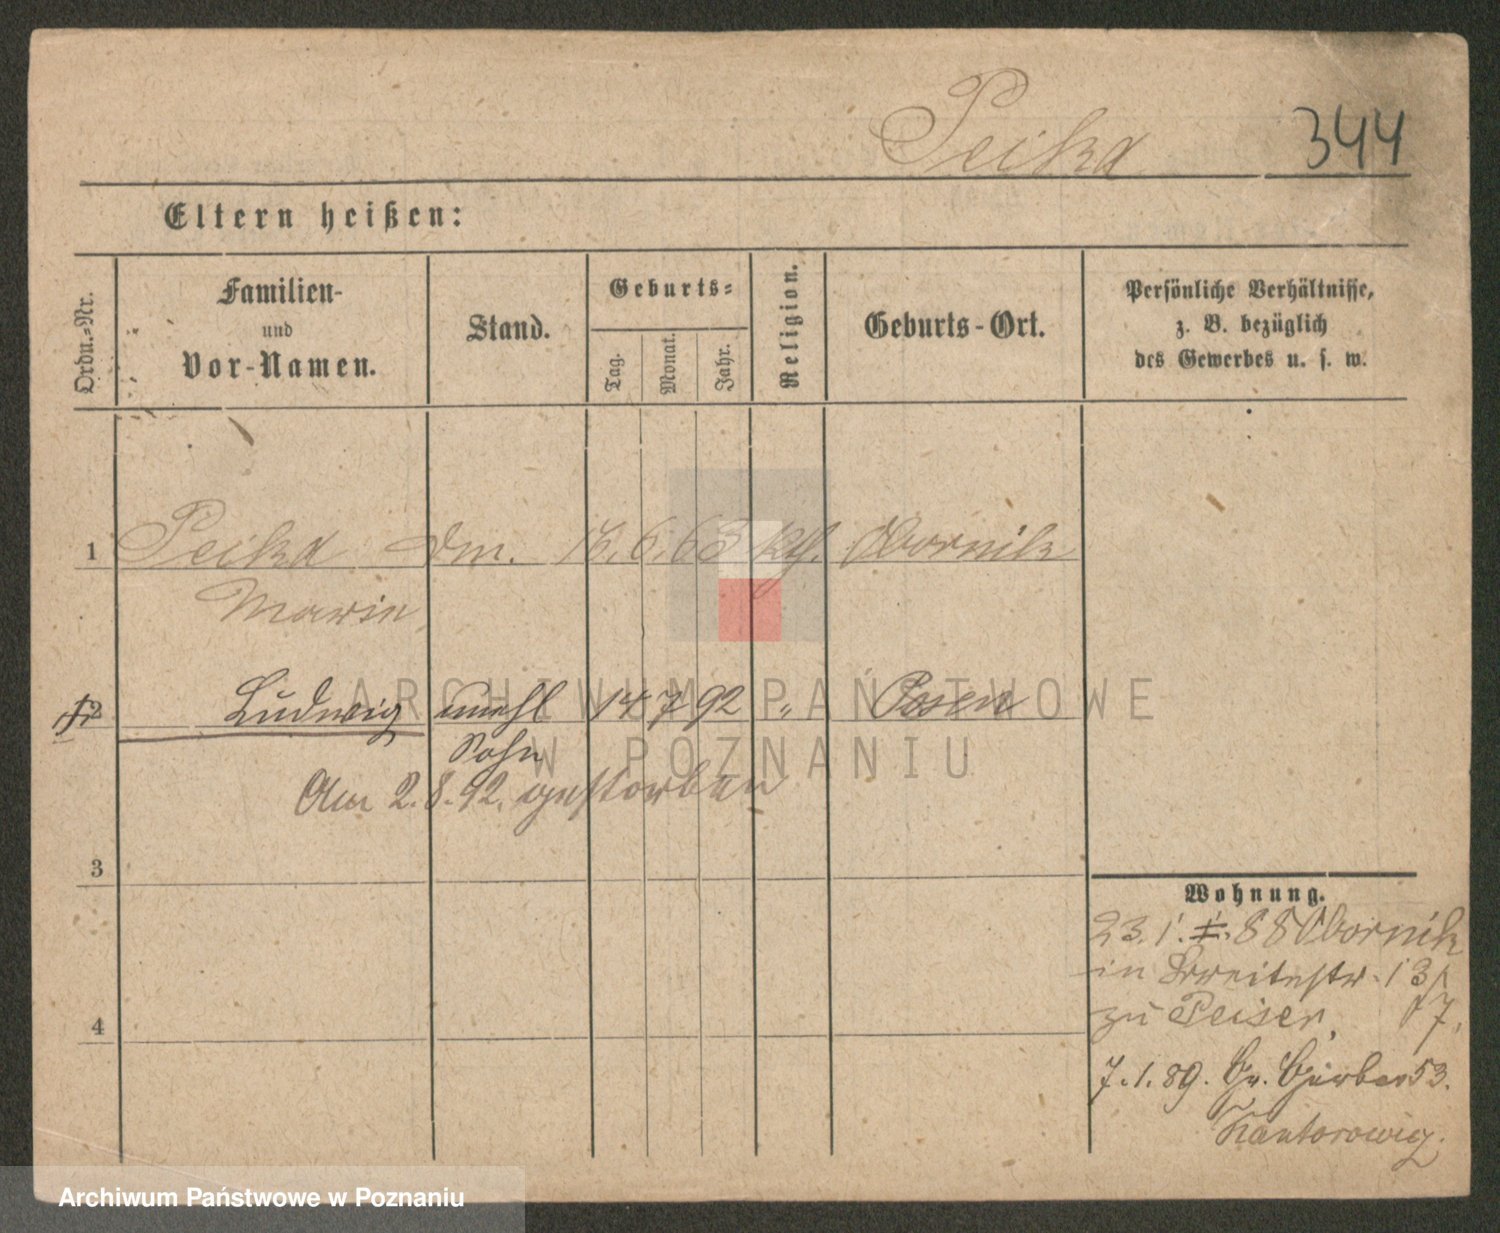 Peika 344
Eltern heißen:
Ordn.-Nr. Familien- und Vor-Namen. Stand. Geburts- Tag. Monat. Jahr. Religion. Geburts-Ort. Persönliche Verhältnisse, z. B. bezüglich des Gewerbes u. s. w.
1 Peika dm. 6. 63 Obornik
Marie
2 Ludwig unehl 14 7 92 " Posen
Sohn
Am 2.8.92. gestorben
3
4
Wohnung.
23. 1. 88 Obornik
in Breitestr. 13/
zu Peiser. 17.
7.1.89. Gr. Gerber 53.
Kantorowicz.
ARCHIWUM PAŃSTWOWE
W POZNANIU
Archiwum Państwowe w Poznaniu